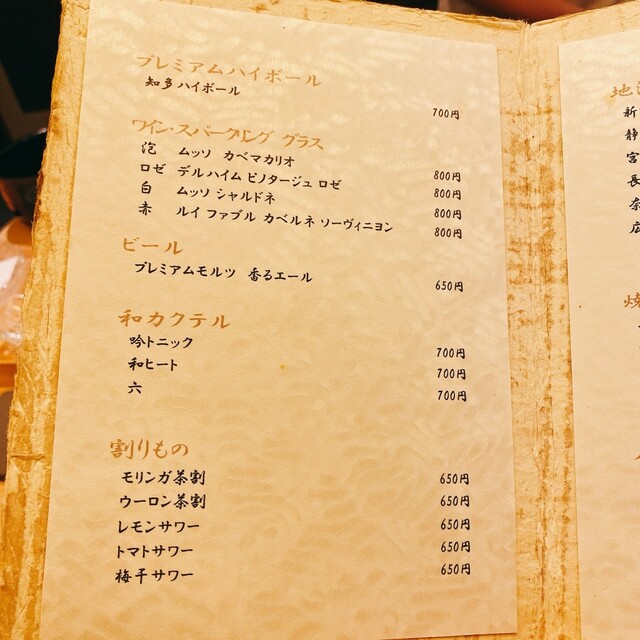 プレミアムハイボール
知多ハイボール 700円
ワイン・スパークリング グラス
泡 ムッソ カベマカリオ 800円
ロゼ デルハイム ピノタージュ ロゼ 800円
白 ムッソ シャルドネ 800円
赤 ルイ ファブル カベルネ ソーヴィニヨン 800円
ビール
プレミアムモルツ 香るエール 650円
和カクテル
吟トニック 700円
和ヒート 700円
六 700円
割りもの
モリンガ茶割 650円
ウーロン茶割 650円
レモンサワー 650円
トマトサワー 650円
梅干サワー 650円
地
新
静
宮
長
奈
広
焼